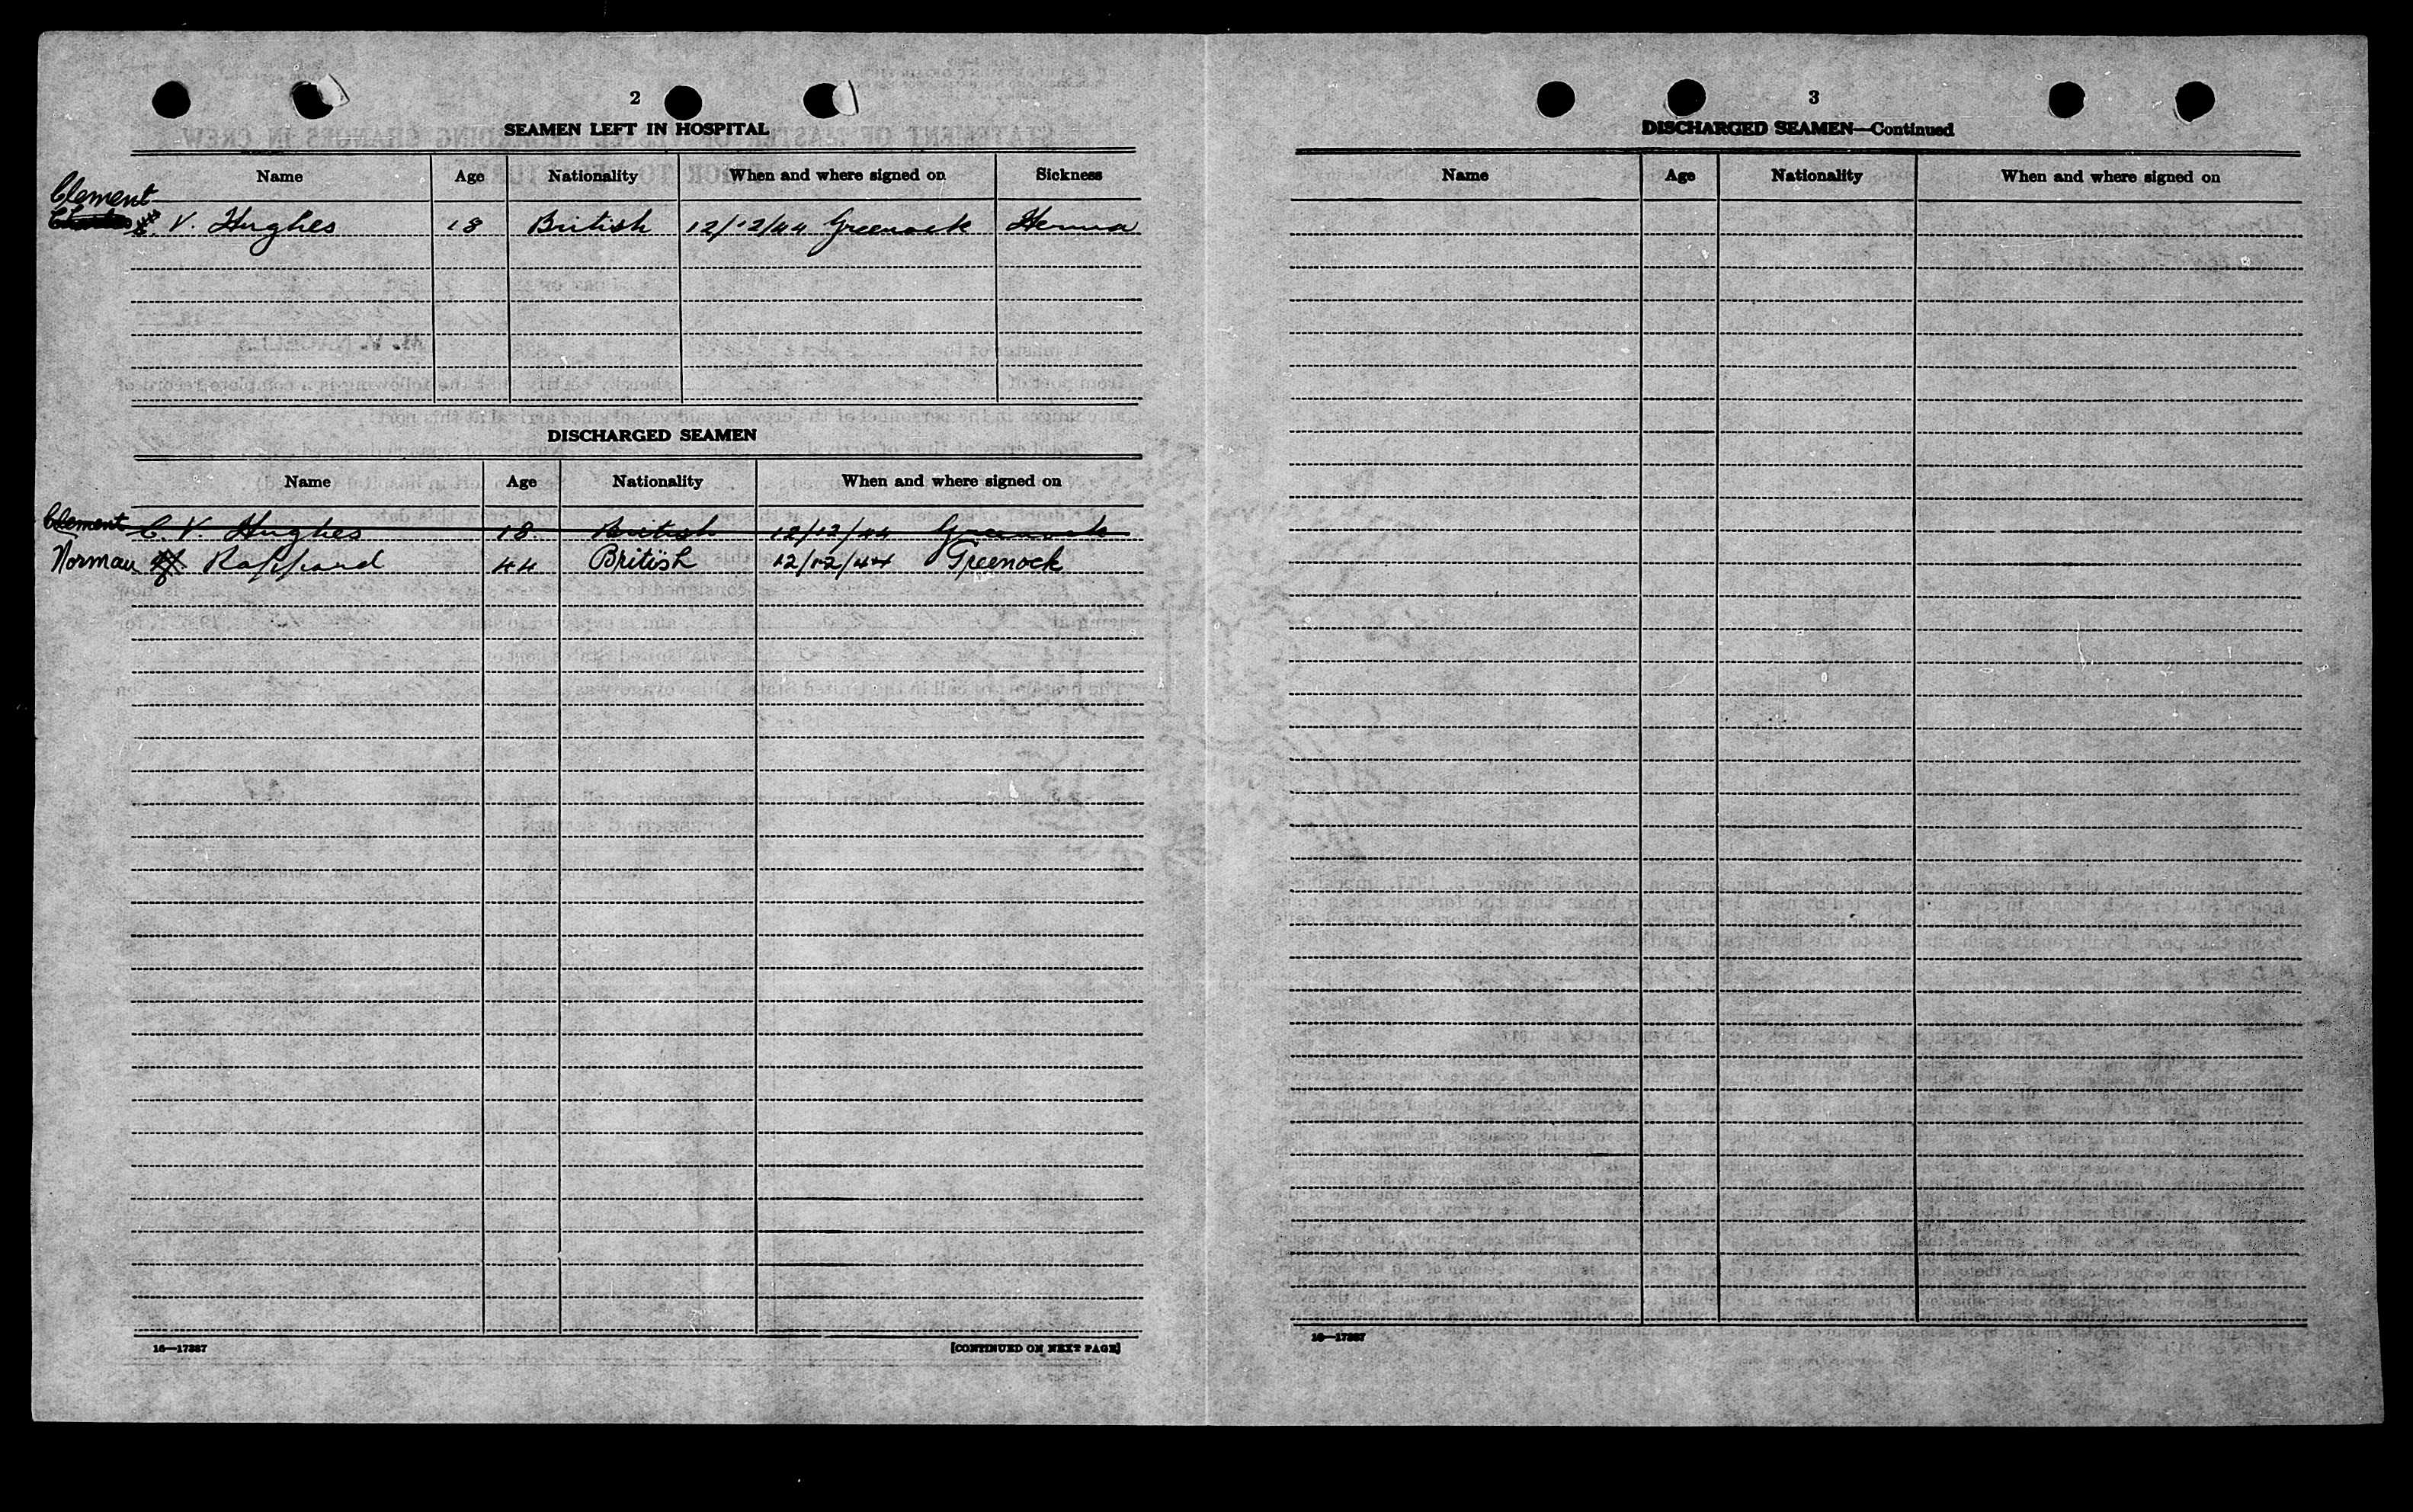 2
SEAMEN LEFT IN HOSPITAL
Name Age Nationality When and where signed on Sickness
Clement
V. Hughes 18 British 12/12/44 Greenock Hernia
DISCHARGED SEAMEN
Name Age Nationality When and where signed on
Clement C. V. Hughes 18. British 12/12/44 Greenock
Norman 44 British 12/12/44 Greenock
16—17387
[CONTINUED ON NEXT PAGE]
3
DISCHARGED SEAMEN—Continued
Name Age Nationality When and where signed on
16—17387